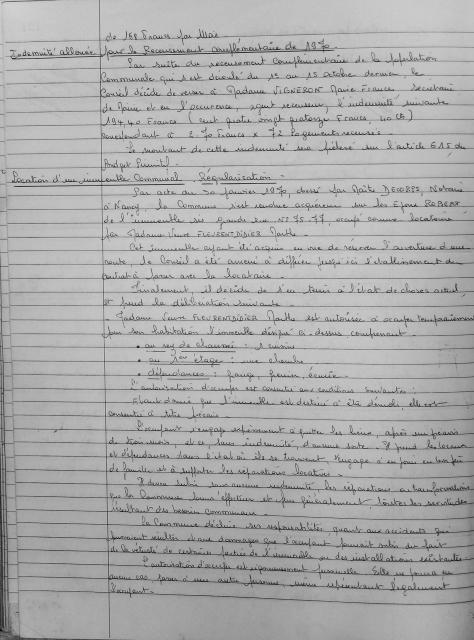 de 150 Francs par Mois
Indemnité allouée pour le Recensement complémentaire de 1970.
Par suite du recensement complémentaire de la population
Communale qui s'est déroulé du 1er au 15 octobre dernier, le
Conseil décide de verser à Madame VIGNERON Marie France, Secrétaire
de Mairie et en l'occurence, agent recenseur, l'indemnité suivante
194,40 Francs (cent quatre vingt quatorze Francs, 40 cts)
correspondant à 2.70 Francs x 72 logements recensés.
Le montant de cette indemnité sera prélevé sur l'article 615 du
Budget Primitif.
Location d'un immeuble Communal. Régularisation.
Par acte du 30 janvier 1970, dressé par Maître DECORPS, Notaire
à Nancy, la Commune s'est rendue acquéreur sur les Epoux ROBERT
de l'immeuble sis grande rue N° 75-77, occupé comme locataire
par Madame Veuve FLEURENTDIDIER Marthe.
Cet immeuble ayant été acquis en vue de réserver l'ouverture d'une
route, le Conseil a été amené à différer jusqu'ici l'établissement du
contrat à passer avec la locataire.
Finalement, il décide de s'en tenir à l'état de choses actuel,
et prend la délibération suivante.
Madame Veuve FLEURENTDIDIER Marthe est autorisée à occuper temporairement
pour son habitation l'immeuble désigné ci-dessus comprenant.
• au rez de chaussée : 1 cuisine
• au 1er étage : une chambre
• dépendances : grange, grenier, écurie.
L'autorisation d'occuper est consentie aux conditions suivantes :
Etant donné que l'immeuble est destiné à être démoli, elle est
consentie à titre précaire.
L'occupant s'engage expressément à quitter les lieux, après un préavis
de trois mois, et ce, sans indemnité, d'aucune sorte. Il prend les locaux
et dépendances dans l'état où ils se trouvent, s'engage à en jouir en bon père
de famille et à supporter les réparations locatives.
Il devra subir sans aucune indemnité, les réparations ou transformations
que la Commune devra effectuer et plus généralement, toutes les servitudes
résultant des besoins communaux.
La Commune décline ses responsabilités quant aux accidents qui
pourraient résulter et aux dommages que l'occupant pourrait subir du fait
de la vétusté de certaines parties de l'immeuble ou des installations existantes.
L'autorisation d'occuper est rigoureusement personnelle. Elle ne pourra en
aucun cas passer à une autre personne, même représentant légalement
l'occupant.